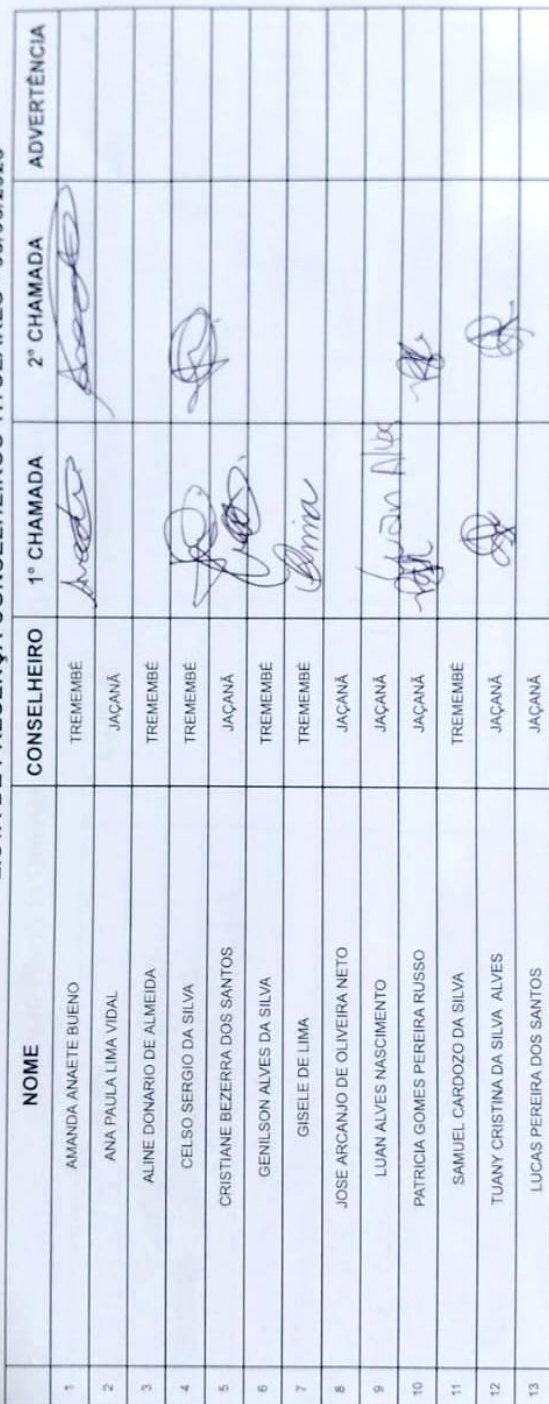 NOME CONSELHEIRO 1° CHAMADA 2° CHAMADA ADVERTÊNCIA
1 AMANDA ANAETE BUENO TREMEMBÉ
2 ANA PAULA LIMA VIDAL JAÇANÃ
3 ALINE DONARIO DE ALMEIDA TREMEMBÉ
4 CELSO SERGIO DA SILVA TREMEMBÉ
5 CRISTIANE BEZERRA DOS SANTOS JAÇANÃ
6 GENILSON ALVES DA SILVA TREMEMBÉ
7 GISELE DE LIMA TREMEMBÉ
8 JOSE ARCANJO DE OLIVEIRA NETO JAÇANÃ
9 LUAN ALVES NASCIMENTO JAÇANÃ
10 PATRICIA GOMES PEREIRA RUSSO JAÇANÃ
11 SAMUEL CARDOZO DA SILVA TREMEMBÉ
12 TUANY CRISTINA DA SILVA ALVES JAÇANÃ
13 LUCAS PEREIRA DOS SANTOS JAÇANÃ